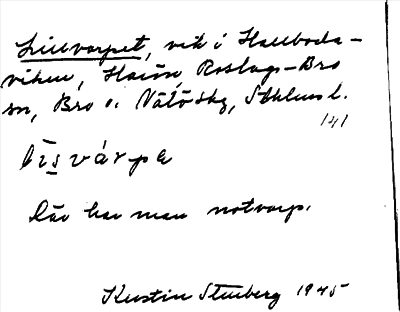 Lillvarpet, vik i Hallboda-
viken, Harön, Roslags-Bro
sn, Bro o. Vätö skg, Sthlms l.
141
där har man notvarp.
Kerstin Stenberg 1945